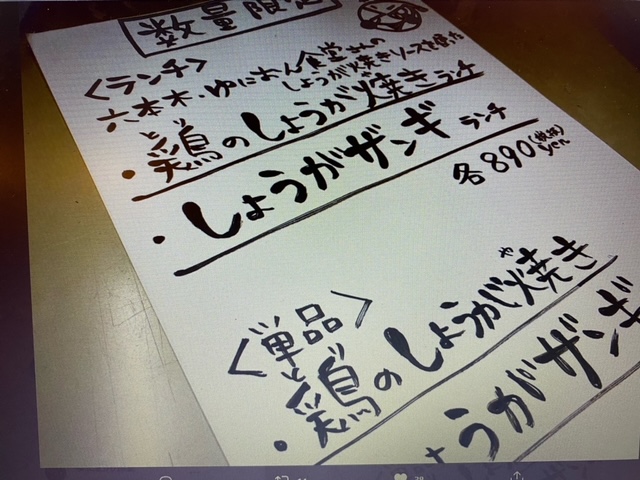 数量限定
<ランチ>
六本木・ゆにおん食堂さんの
しょうが焼きソースを使った
・鶏のしょうが焼きランチ
とり
・しょうがザンギ ランチ
各890(税抜)yen
<単品>
・鶏のしょうが焼き
とり
や
うがザンギ